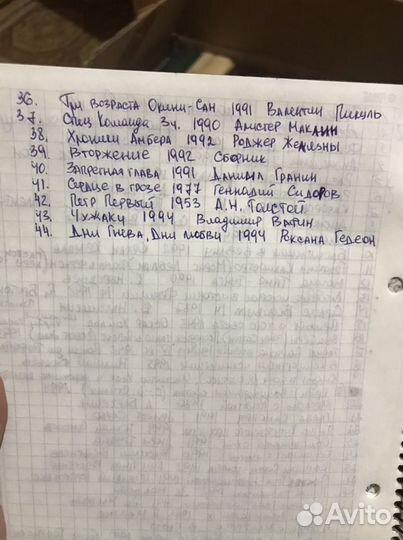 36. Три возраста Окини-Сан 1991 Валентин Пикуль
37. Спец Команда 3ч. 1990 Алистер Маклин
38, Хроники Амбера 1992 Роджер Желязны
39. Вторжение 1992 Сборник
40. Запретная глава 1991 Даниил Гранин
41. Сердце в грозе 1977 Геннадий Сидоров
42. Петр Первый 1953 А.Н. Толстой.
43. Чужаки 1994 Владимир Вафин
44. Дни Гнева, Дни любви 1994 Роксана Гедеон
Avito